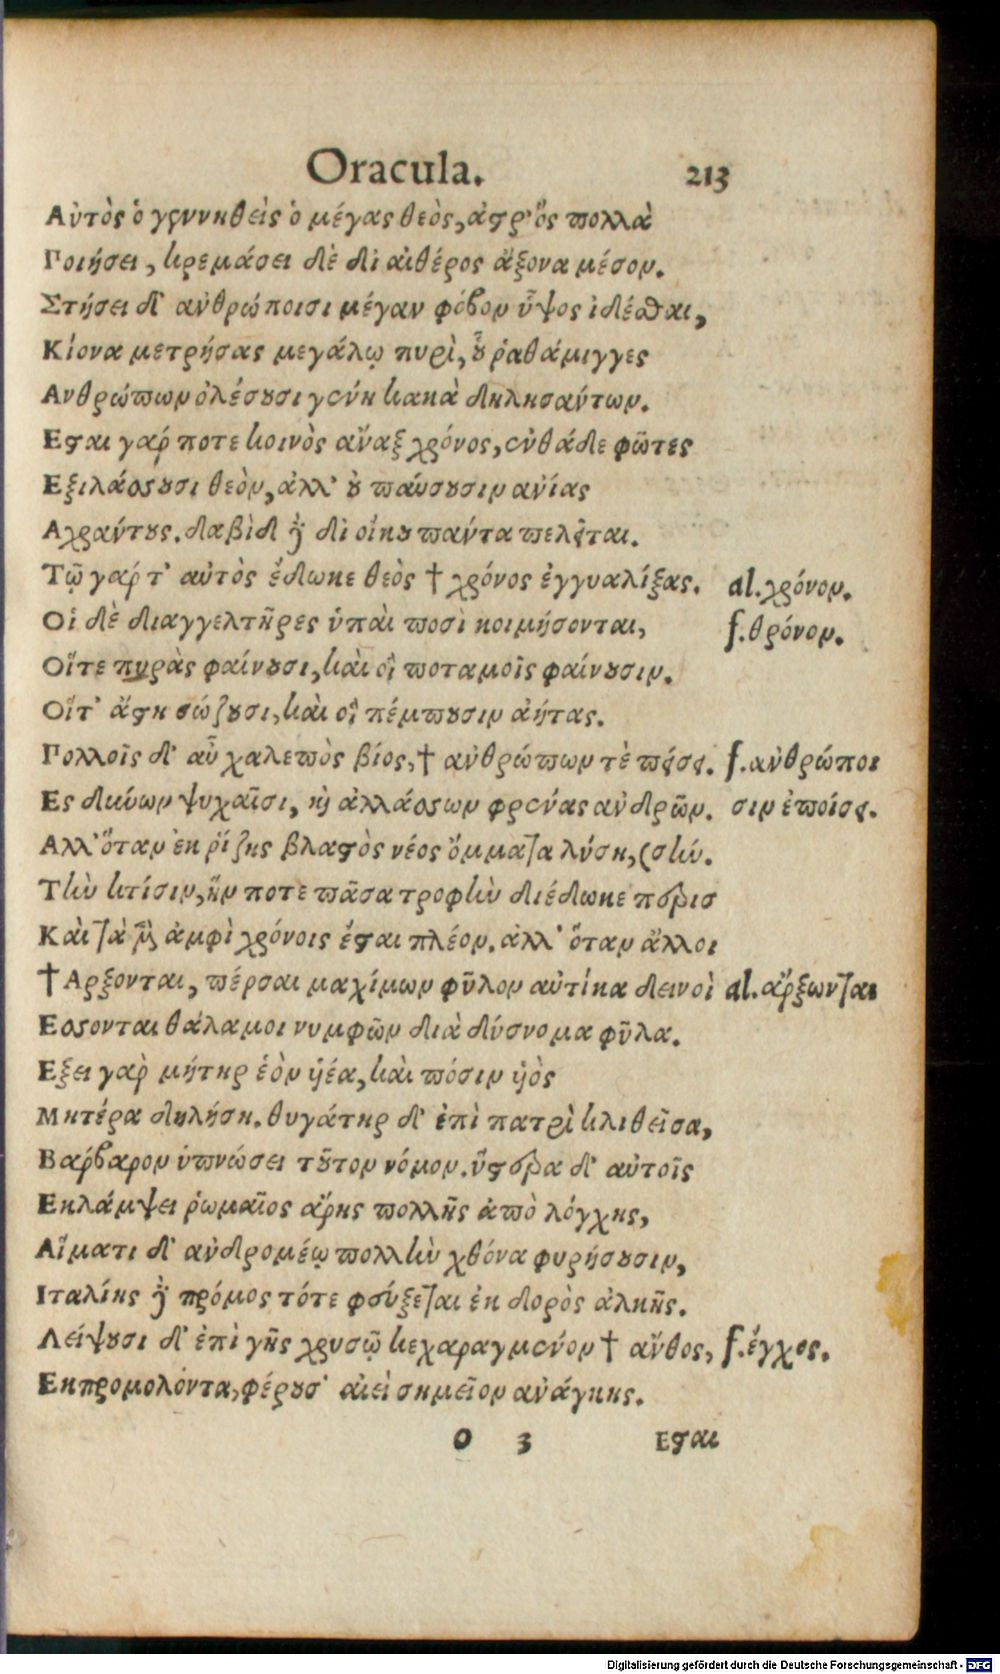 Oracula. 213
Αὐτὸς ὁ γεννηθεὶς ὁ μέγας θεὸς, ἀστρ' ὃς πολλὰ
Ποιήσει, κρεμάσει δὲ δι αἰθέρος ἄξονα μέσον.
Στήσει δ' ἀνθρώποισι μέγαν φόβον ὕψος ἰδέσθαι,
Κίονα μετρήσας μεγάλῳ πυρὶ, οὗ ῥαθάμιγγες
Ανθρώπων ὀλέσουσι γένη κακὰ δηλησαύτων.
Εσται γάρ ποτε κοινὸς ἄναξ χρόνος, ἐνθάδε φῶτες
Εξιλάσουσι θεὸν, ἀλλ' οὐ παύσουσιν ἀνίας
Αχράντους. δαβὶδ ἢ δὶ οἴκου πάντα πελεῖται.
Τῷ γάρ τ' αὐτὸς ἔδωκε θεὸς † χρόνος ἐγγυαλίξας. al. χρόνον.
Οἱ δὲ διαγγελτῆρες ὑπαὶ ποσὶ κοιμήσονται, f. θρόνον.
Οἵτε πυρὰς φαίνουσι, καὶ οἳ ποταμοῖς φαίνουσιν.
Οἵτ' ἄστη σώζουσι, καὶ οἳ πέμπουσιν ἀήτας.
Πολλοῖς δ' αὖ χαλεπὸς βίος, † ἀνθρώπων τὲ πέσε. f. ἀνθρώποι
Ες δύνων ψυχαῖσι, καὶ ἀλλάσσων φρένας ἀνδρῶν. σιν ἐποίσε.
Αλλ' ὅταν ἐκ ῥίζης βλαστὸς νέος ὄμματα λύσῃ, (σὴν.
Τὴν κτίσιν, ἥν ποτε πᾶσα τροφὴν διέδωκε περισ
Καὶ τὰ μὲν ἀμφὶ χρόνοις ἔσται πλέον. ἀλλ' ὅταν ἄλλοι
† Αρξονται, πέρσαι μαχίμων φῦλον αὐτίκα δεινοὶ al. ἄρξωνται
Εσονται θάλαμοι νυμφῶν διὰ δύσνομα φῦλα.
Εξει γὰρ μήτηρ ἑὸν ὑιέα, καὶ πόσιν ὑιὸς
Μητέρα δηλήσῃ. θυγάτηρ δ' ἐπὶ πατρὶ κλιθεῖσα,
Βαρβαρον ὑπνώσει τοῦτον νόμον. ὕστερα δ' αὐτοῖς
Εκλάμψει ῥωμαῖος ἄρης πολλῆς ἀπὸ λόγχης,
Αἵματι δ' ἀνδρομέῳ πολλὴν χθόνα φυρήσουσιν,
Ιταλίης ἢ πρόμος τότε φεύξεται ἐκ δορὸς ἀλκῆς.
Λείψουσι δ' ἐπὶ γῆς χρυσῷ κεχαραγμένον † ἄνθος, f. ἔγχος.
Εκπρομολόντα, φέρουσ' αἰεὶ σημεῖον ἀνάγκης.
O 3 Εσται
Digitalisierung gefördert durch die Deutsche Forschungsgemeinschaft - DFG